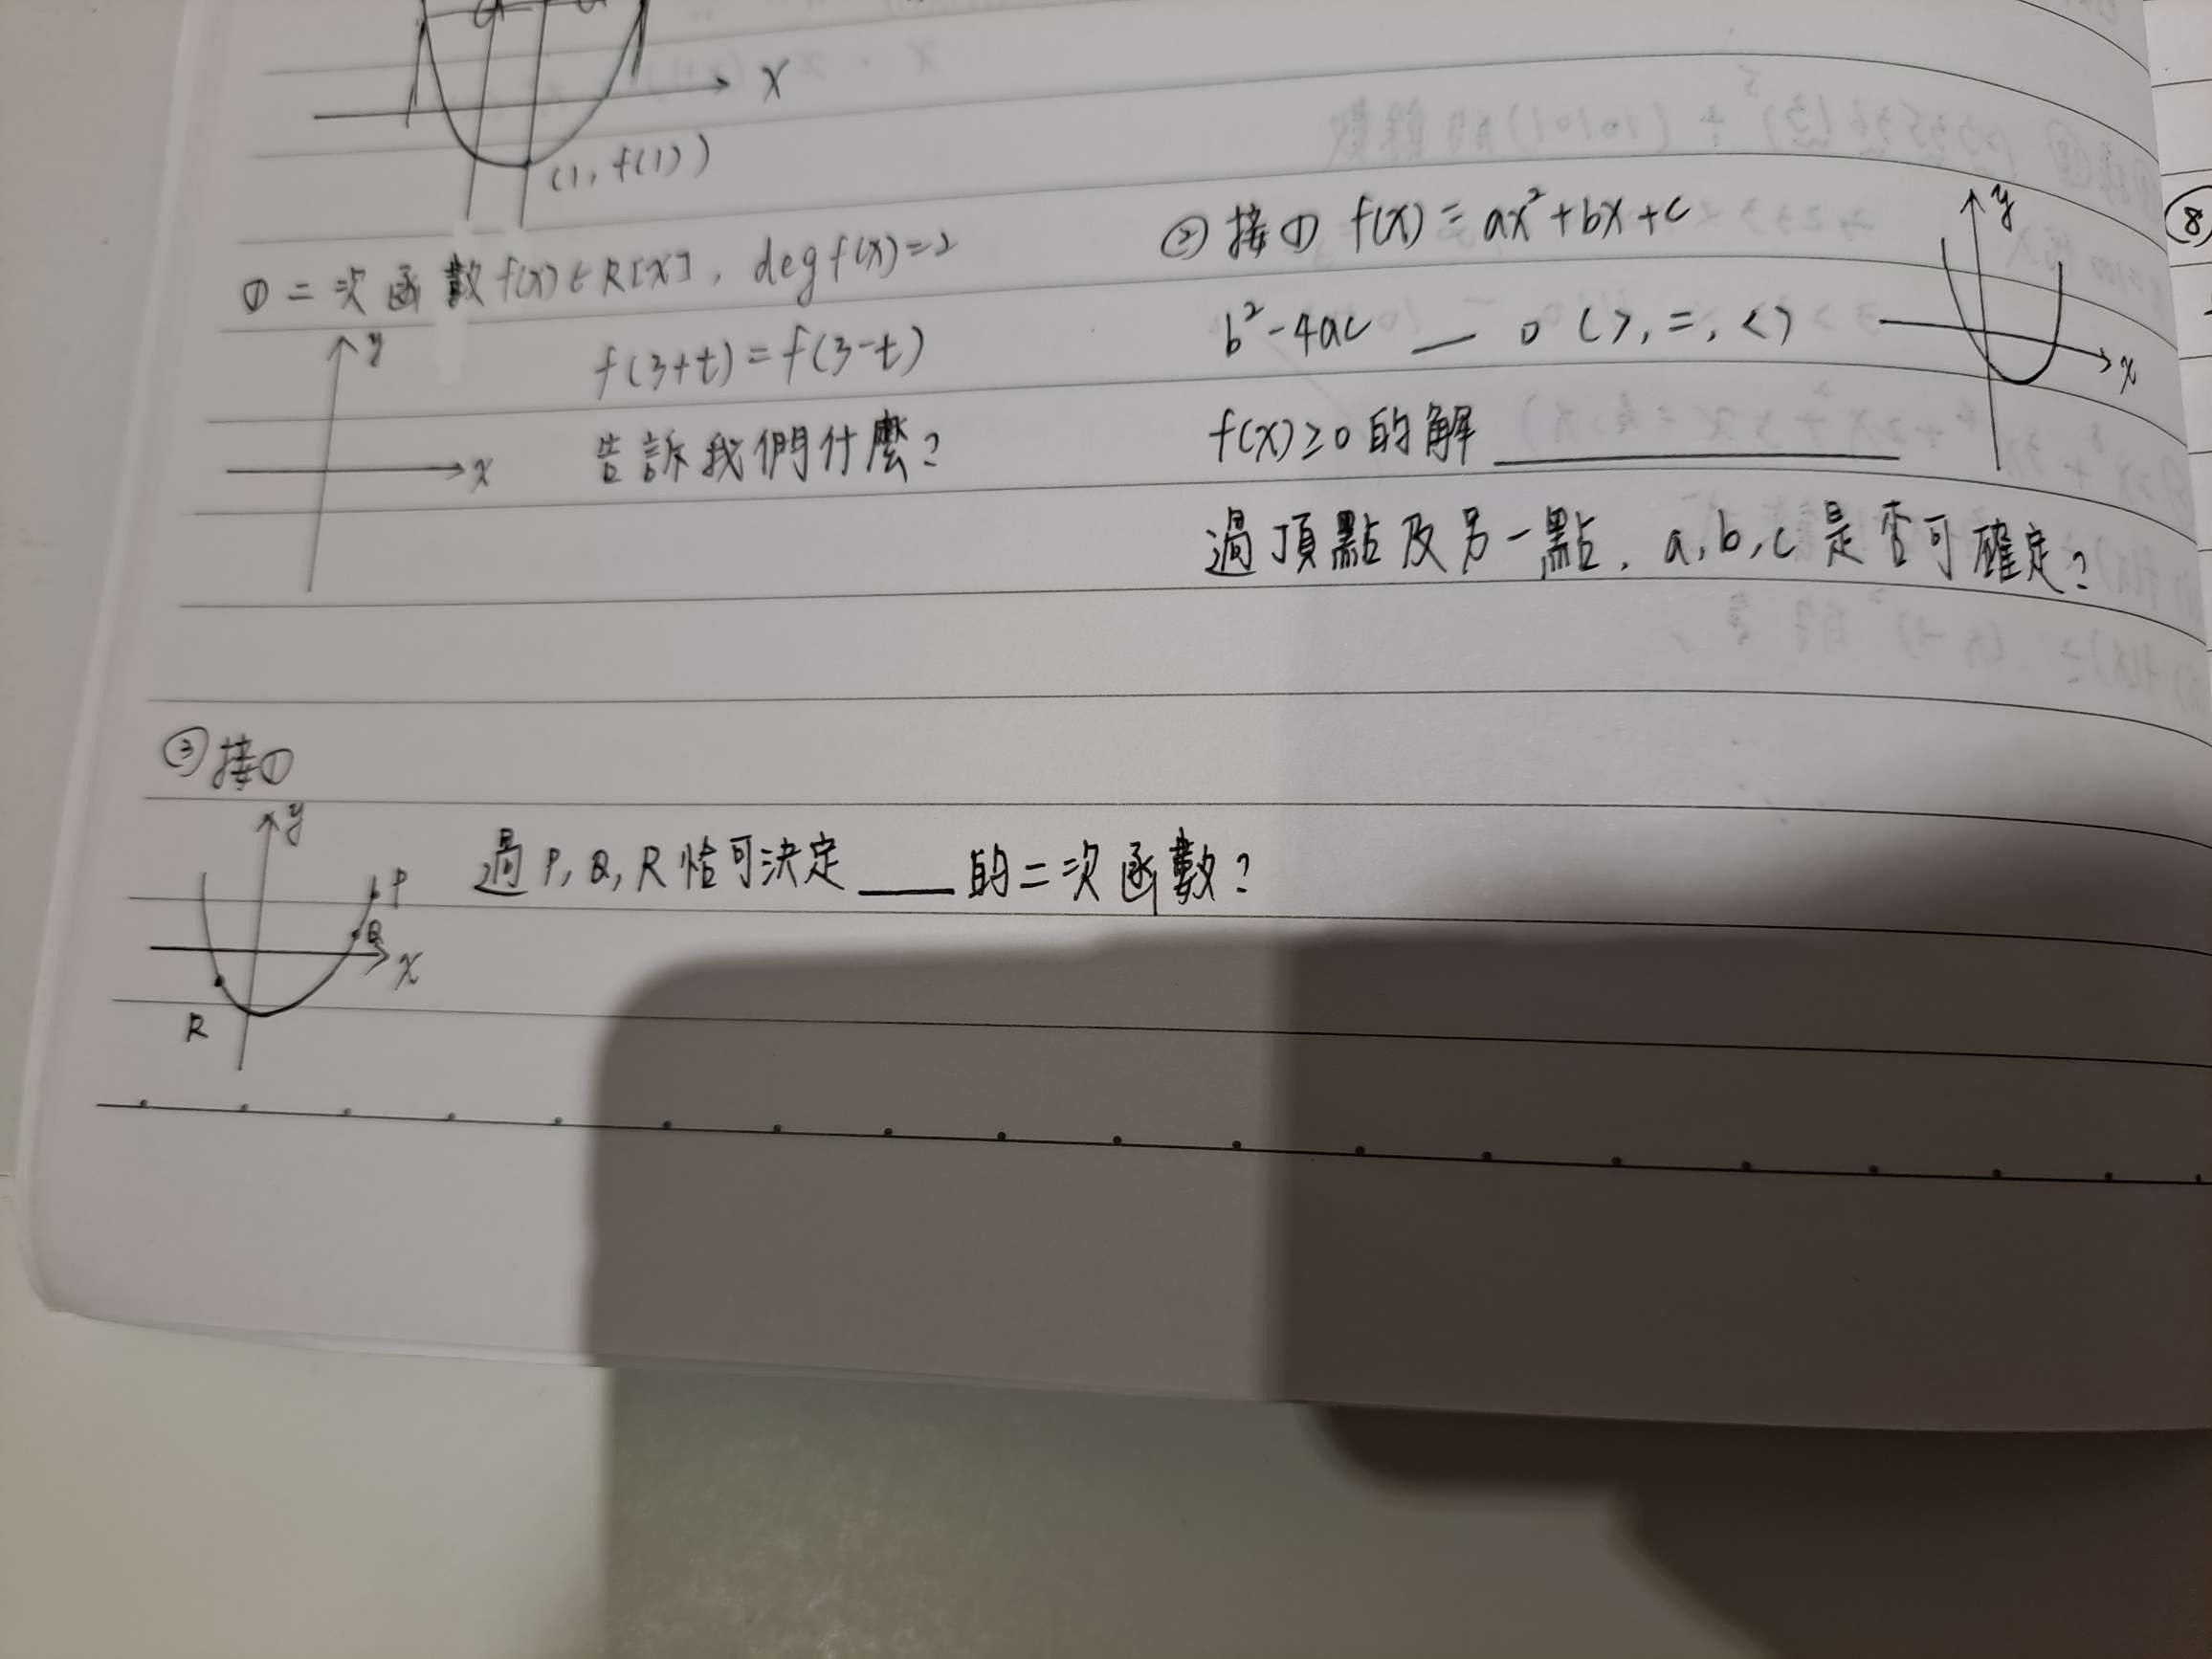 x
(1, f(1))
① 二次函數 f(x) ∈ R[x], deg f(x)=2
y
f(3+t) = f(3-t)
告訴我們什麼?
x
② 接① f(x) = ax²+bx+c
y
⑧
b²-4ac __ 0 (>, =, <)
x
f(x)≥0 的解 ________
過頂點及另一點, a, b, c 是否可確定?
③ 接①
y
過 P, Q, R 恰可決定 ____ 的二次函數?
P
Q
x
R